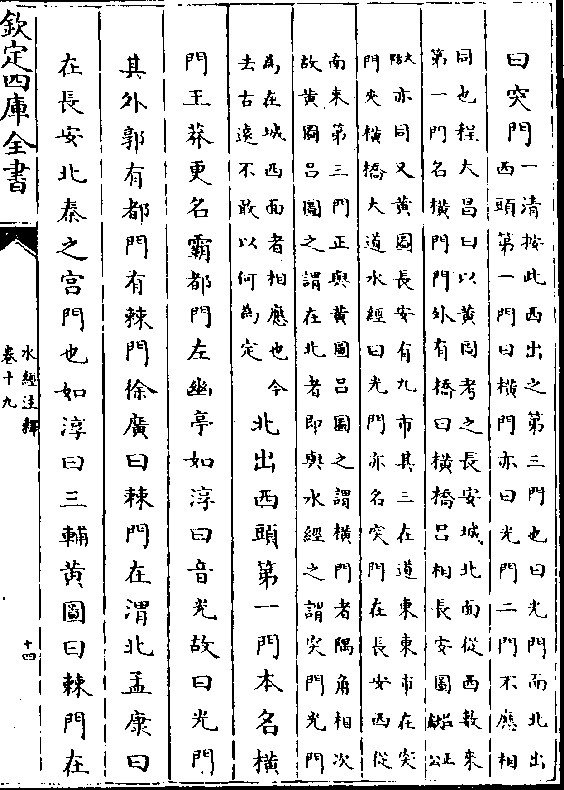 曰突門
一清按此西出之第三門也曰光門而北出
西頭第一門曰横門亦曰光門二門不應相
同也程大昌曰以黄圖考之長安城北面從西數來
第一門名橫門門外有橋曰橫橋吕相長安圖
亦同又黄圖長安有九市其三在道東東市在突
門夾橫橋大道水經曰光門亦名突門在長安西從
南来第三門正與黄圖吕圖之謂橫門者隅角相次
故黄圖吕圖之謂在北者即與水經之謂突門光門
為在城西面者相應也今
去古逺不敢以何為定
北出西頭第一門本名橫
門王莽更名霸都門左幽亭如淳曰音光故曰光門
其外郭有都門有棘門徐廣曰棘門在渭北孟康曰
在長安北秦之宫門也如淳曰三輔黄圖曰棘門在
欽定四庫全書
水經注釋
卷十九
十四